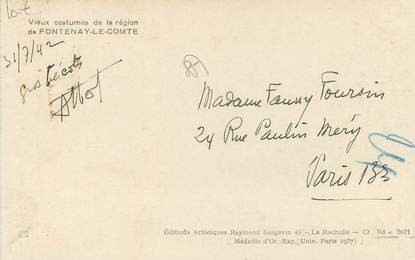 Lot
Vieux costumes de la région
de FONTENAY-LE-COMTE
31/7/42
gros bécots
Albert
Madame Fanny Toursin
24 Rue Paulin Méry
Paris 13e
Éditions Artistiques Raymond Bergevin - La Rochelle -
Médaille d'Or, Exp. Univ. Paris 1937